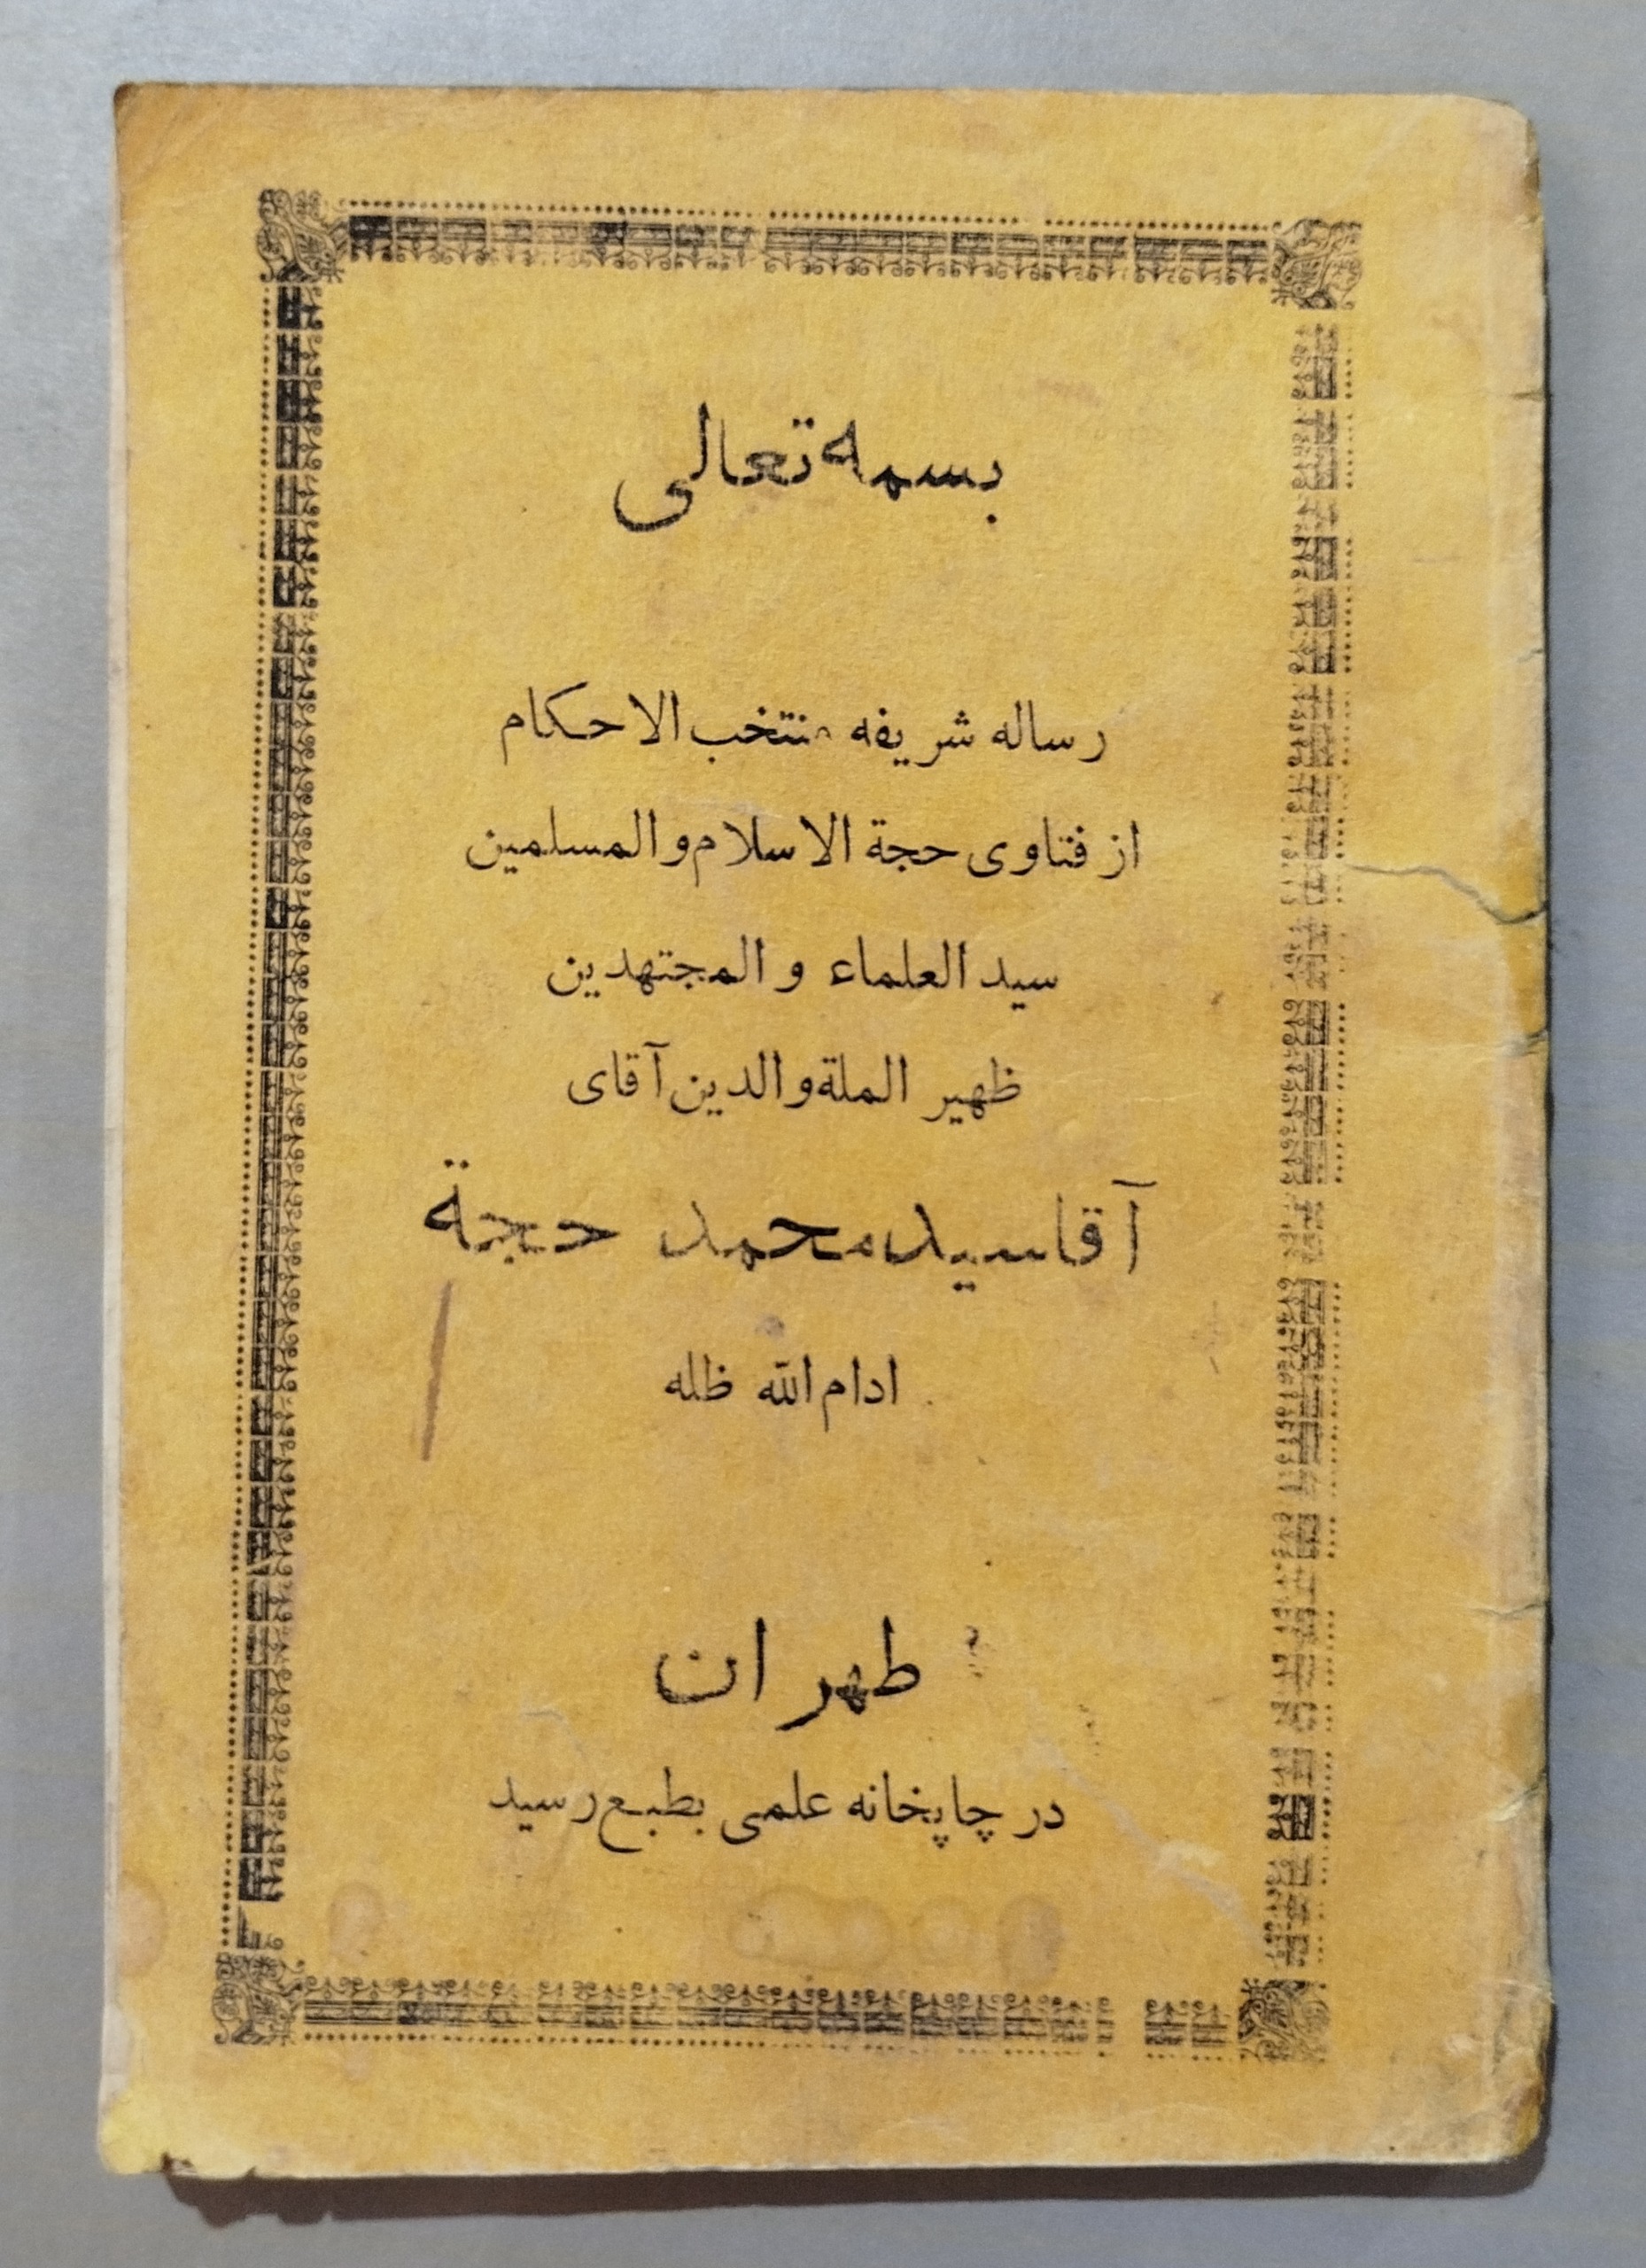 بسمه تعالی
رساله شریفه منتخب الاحکام
از فتاوی حجة الاسلام والمسلمین
سید العلماء والمجتهدین
ظهیر الملة والدین آقای
آقا سید محمد حجة
ادام الله ظله
طهران
در چاپخانه علمی بطبع رسید